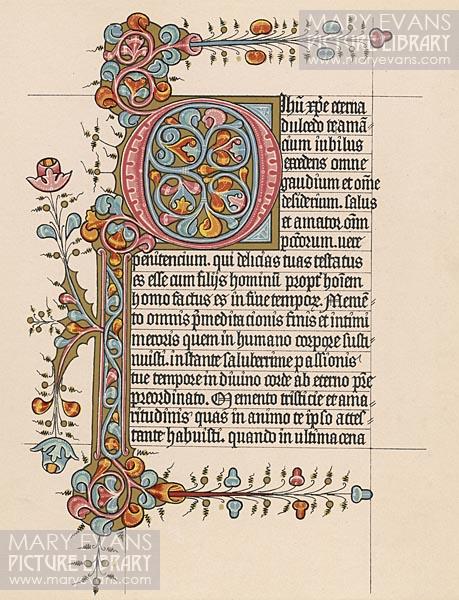 MARY EVANS
PICTURE LIBRARY
www.maryevans.com
O Jhū xp̄e eterna
dulcedo te amā
cium iubilus
excedens omne
gaudium et om̄e
desiderium. salus
et amator om̄
pctorum. uere
penitencium. qui delicias tuas testatus
es esse cum filijs hominū propt' hoīem
homo factus es in fine tempor. Memē
to omnis p̄meditacionis finis et intimi
meroris quem in humano corpore susti
nuisti. instante saluberime passionis
tue tempore in diuino corde ab eterno p̄re
preordinato. Memento tristicie et ama
ritudinis quas in animo te ipso attes
tante habuisti. quando in ultima cena
MARY EVANS
PICTURE LIBRARY
www.maryevans.com
MARY EVANS
PICTURE LIBRARY
www.maryevans.com